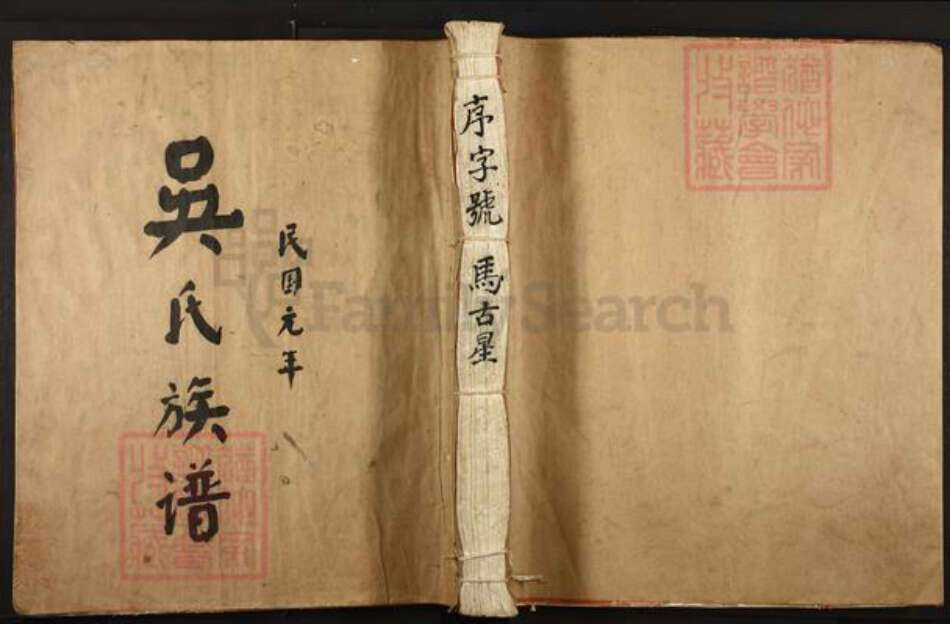 吳氏族谱
民国元年
序字號 馬古星
FamilySearch